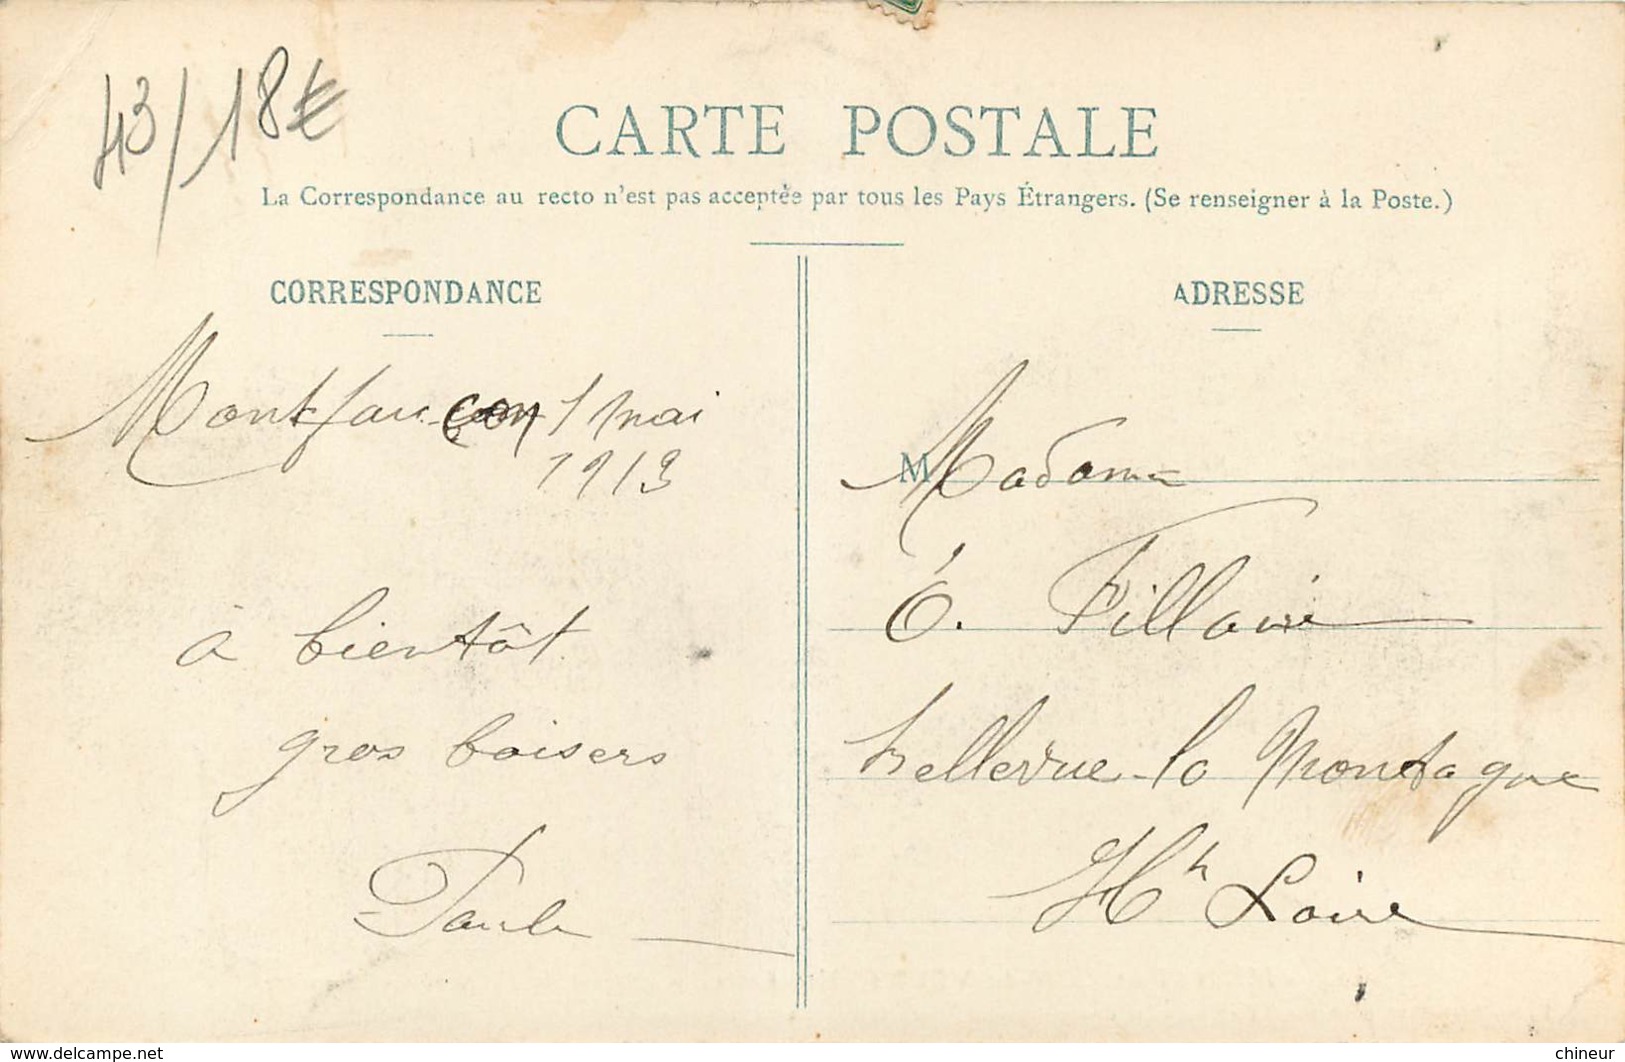 43/18€
CARTE POSTALE
La Correspondance au recto n'est pas acceptée par tous les Pays Étrangers. (Se renseigner à la Poste.)
CORRESPONDANCE
Montfaucon 1 mai
1913
à bientôt
gros baisers
Paule
ADRESSE
M Madame
É. Fillaire
Bellevue-la Montagne
Hte Loire
www.delcampe.net
chineur